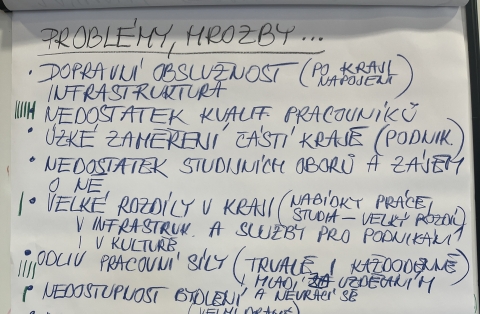 PROBLÉMY, HROZBY...
• DOPRAVNÍ OBSLUŽNOST (PO KRAJI
NAPOJENÍ)
INFRASTRUKTURA
NEDOSTATEK KVALIF. PRACOVNÍKŮ
• ÚZKÉ ZAMĚŘENÍ ČÁSTÍ KRAJE (PODNIK.)
• NEDOSTATEK STUDIJNÍCH OBORŮ A ZÁJEM
O NĚ
• VELKÉ ROZDÍLY V KRAJI (NABÍDKY PRÁCE,
STUDIA – VELKÝ ROZDÍL)
V INFRASTRUK. A SLUŽBY PRO PODNIKÁNÍ
I V KULTUŘE
• ODLIV PRACOVNÍ SÍLY (TRVALÉ I KAŽDODENNĚ)
MLADÍ ZA VZDĚLÁNÍM
• NEDOSTUPNOST BYDLENÍ A NEVRACÍ SE
(VELMI DRAHÉ